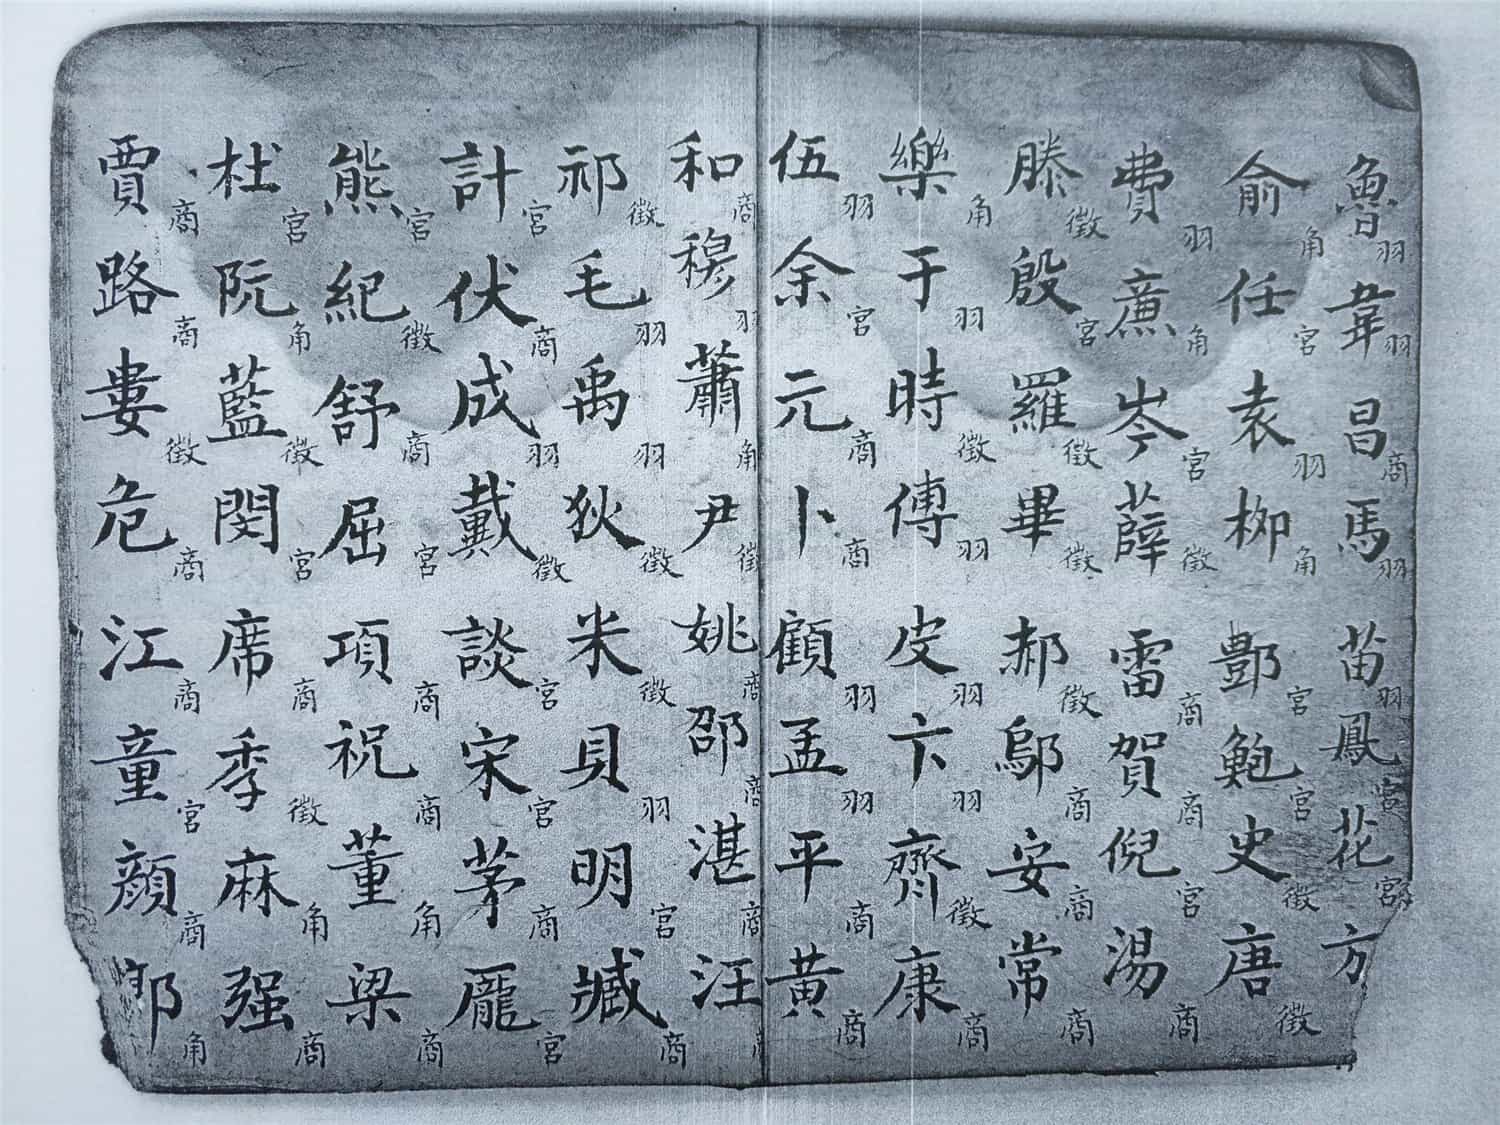 魯羽韋羽昌商馬羽苗羽鳳宮花宮方
俞角任宮袁羽柳角酆宮鮑宮史徵唐徵
費羽廉角岑宮薛徵雷商賀商倪宮湯商
滕徵殷宮羅徵畢徵郝徵鄔商安商常商
樂角于羽時徵傅羽皮羽卞羽齊徵康商
伍羽余宮元商卜商顧羽孟羽平商黃商
和商穆羽蕭角尹徵姚商邵商湛商汪
祁徵毛羽禹羽狄徵米徵貝羽明宮臧商
計宮伏商成羽戴徵談宮宋宮茅商龐宮
熊宮紀徵舒商屈宮項商祝商董角梁商
杜宮阮角藍徵閔宮席商季徵麻角强商
賈商路商婁徵危商江商童宮顔商郭角